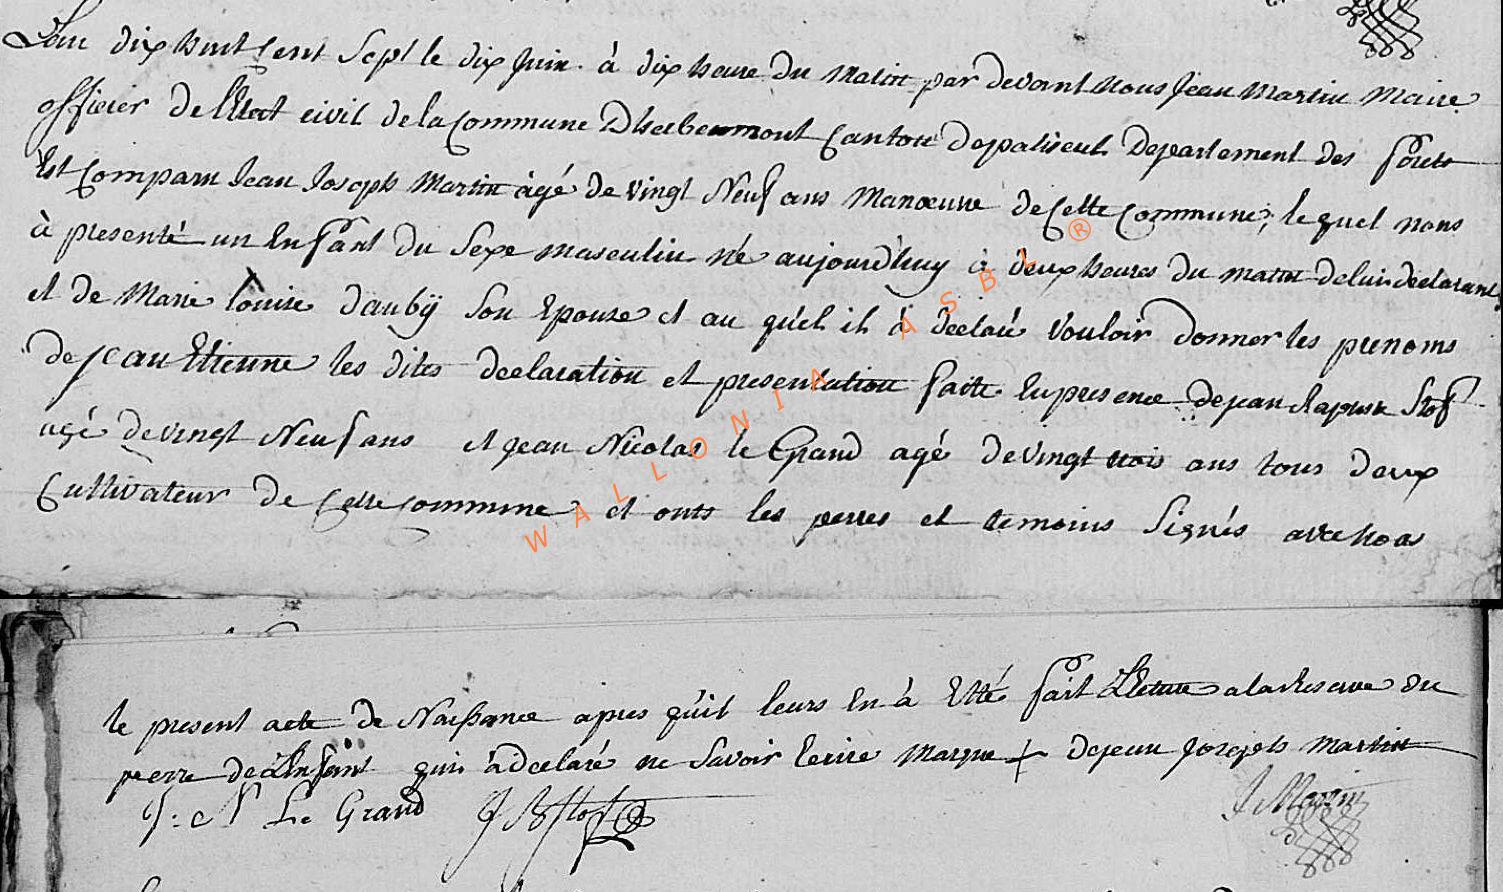 L'an dix huit cent sept le dix Juin à dix heure du matin par devant nous Jean Martin Maire
officier de l'Etat civil de la Commune D'herbeumont Canton de paliseul Departement des forets
Est Comparu Jean Joseph Martin âgé de vingt Neuf ans Manœuvre de Cette Commune, lequel nous
à presenté un Enfant du Sexe masculin né aujourd'huy à deux heures du matin de lui declarant
et de Marie louise dauby Son Epouse et au quel il à declaré Vouloir donner les prenoms
de jean Etienne les dites declaration et presentation faite En presence de jean baptiste Stof
agé de vingt Neuf ans et jean Nicolas le Grand agé de vingt trois ans tous deux
Cultivateur de Cette commune et onts les perres et temoins Signés avec nous
le present acte de Naissance apres qu'il leurs En à Etté fait Lecture a la reserve du
perre de L'Enfant qui à declaré ne Savoir Ecrire Marque + de jean Joseph Martin
J: N Le Grand J B Stof J Martin
WALLONIA ASBL ®